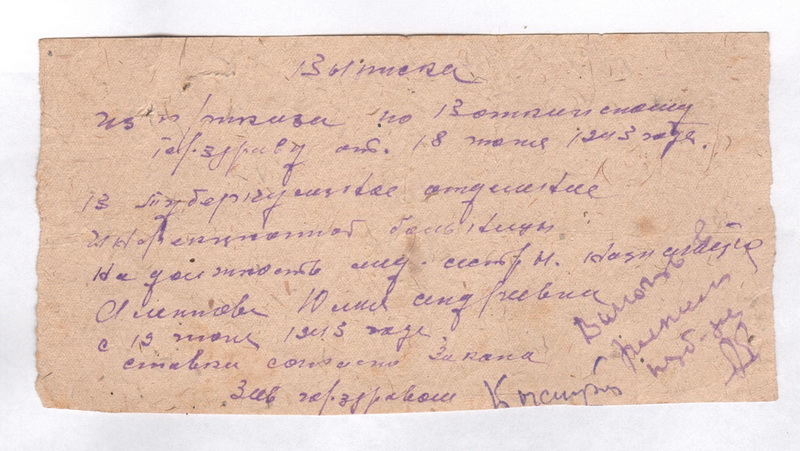 Выписка
из приказа по Воткинскому
горздраву от. 18 июня 1943 года.
В туберкулезное отделение
инфекционной больницы
на должность мед. сестры. назначается
Юлия Андреевна
с 19 июня 1943 года
ставки согласно Закона
Зав горздравом